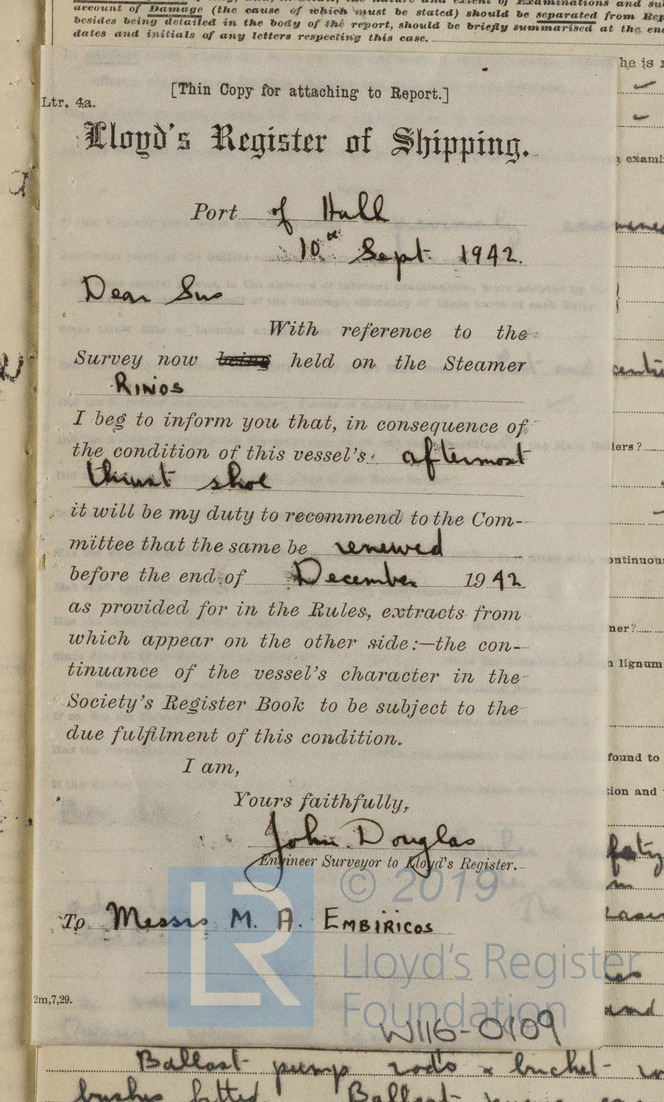 account of Damage (the cause of which must be stated) should be separated from Rep
besides being detailed in the body of the report, should be briefly summarised at the en
dates and initials of any letters respecting this case.
he is
Ltr. 4a.
[Thin Copy for attaching to Report.]
Lloyd's Register of Shipping.
Port of Hull
10th Sept. 1942.
Dear Sirs
With reference to the
Survey now being held on the Steamer
RINOS
I beg to inform you that, in consequence of
the condition of this vessel's aftermost
thrust shoe
it will be my duty to recommend to the Com-
mittee that the same be renewed
before the end of December 1942
as provided for in the Rules, extracts from
which appear on the other side:—the con-
tinuance of the vessel's character in the
Society's Register Book to be subject to the
due fulfilment of this condition.
I am,
Yours faithfully,
John Douglas
Engineer Surveyor to Lloyd's Register.
To Messrs M. A. EMBIRICOS
LR
© 2019
Lloyd's Register
Foundation
2m,7,29.
W116-0109
examin
lers?
ontinuous
ner?
lignum
found to
tion and
and
Ballast pump rods & bucket
bushes fitted. Ballast